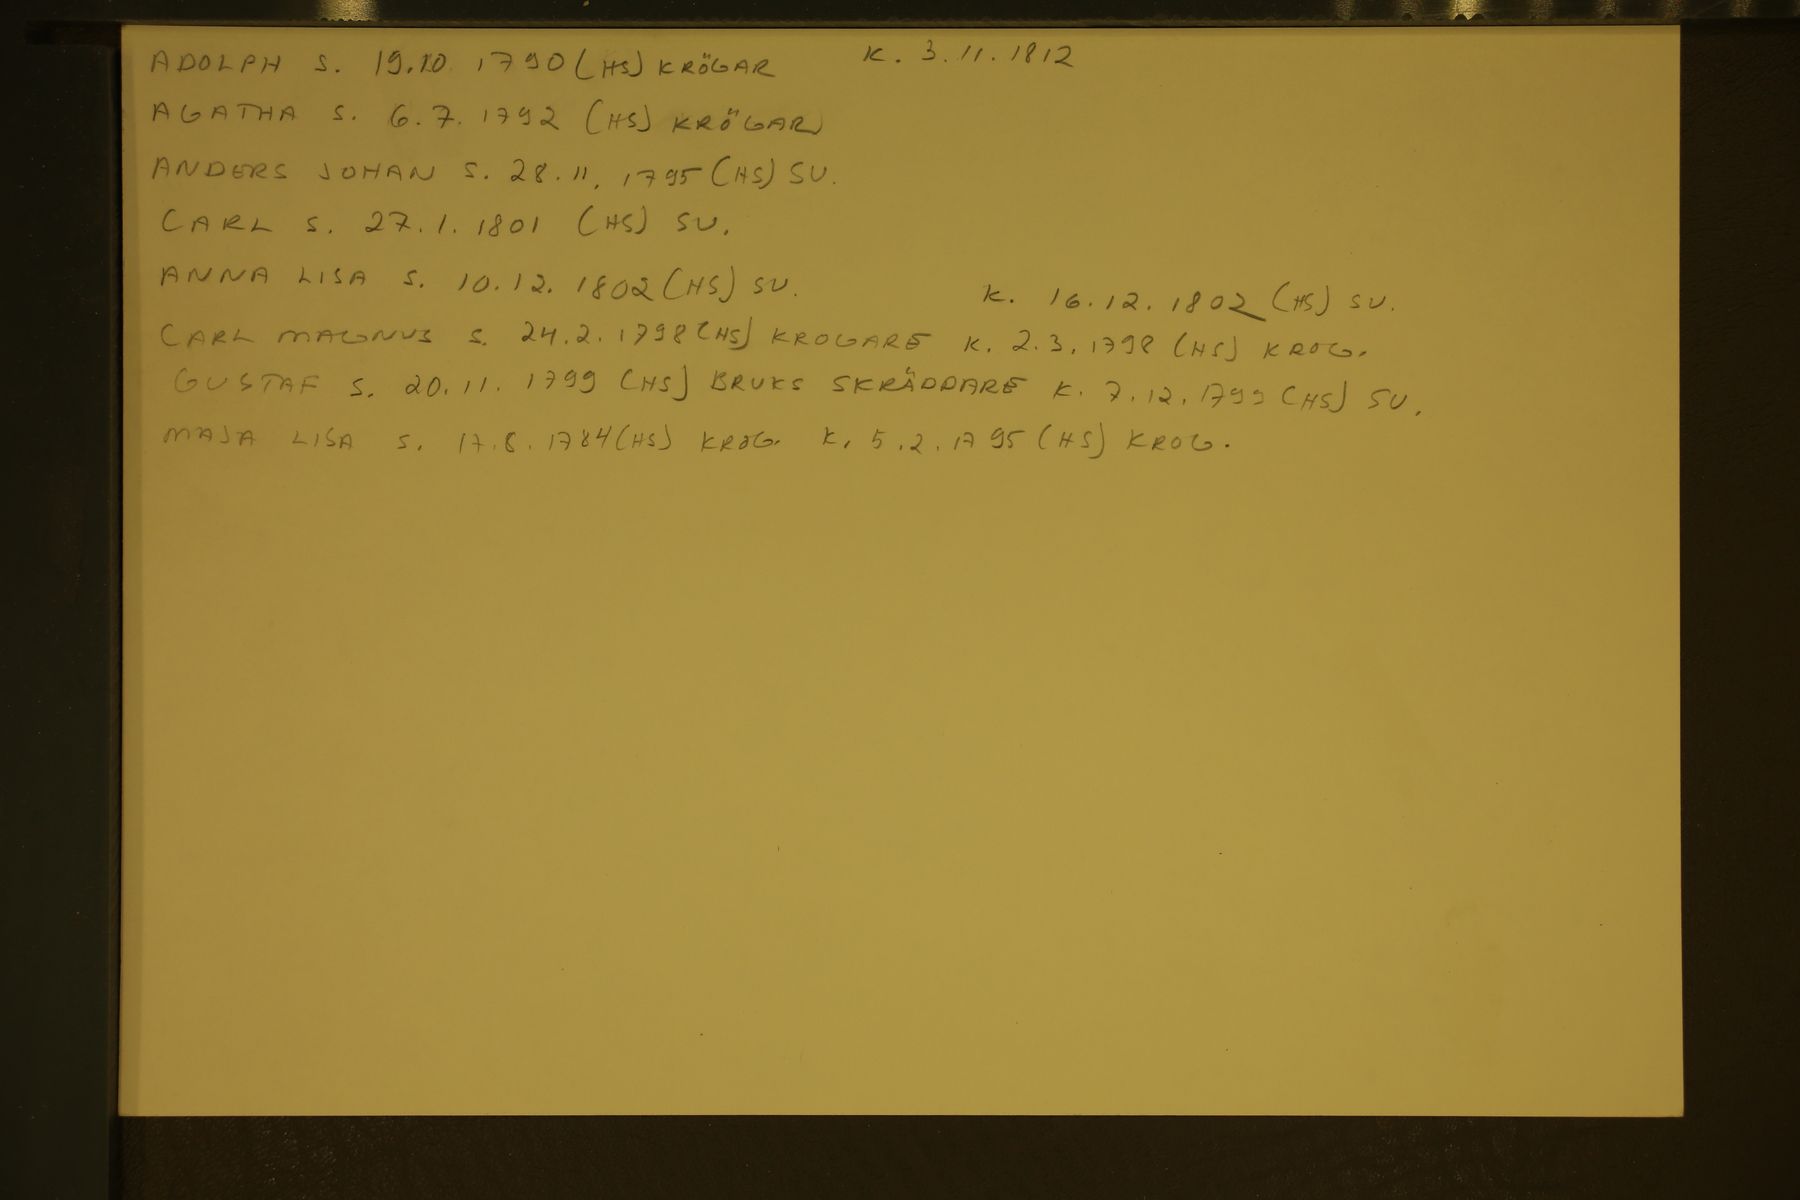 ADOLPH S. 19.10 1790 (HS) KRÖGAR K. 3.11.1812
AGATHA S. 6.7.1792 (HS) KRÖGAR
ANDERS JOHAN S. 28.11.1795 (HS) SU.
CARL S. 27.1.1801 (HS) SU.
ANNA LISA S. 10.12.1802 (HS) SU. K. 16.12.1802 (HS) SU.
CARL MAGNUS S. 24.2.1798 (HS) KROGARE K. 2.3.1798 (HS) KROG.
GUSTAF S. 20.11.1799 (HS) BRUKS SKRÄDDARE K. 7.12.1799 (HS) SU.
MAJA LISA S. 17.8.1784 (HS) KROG. K. 5.2.1795 (HS) KROG.